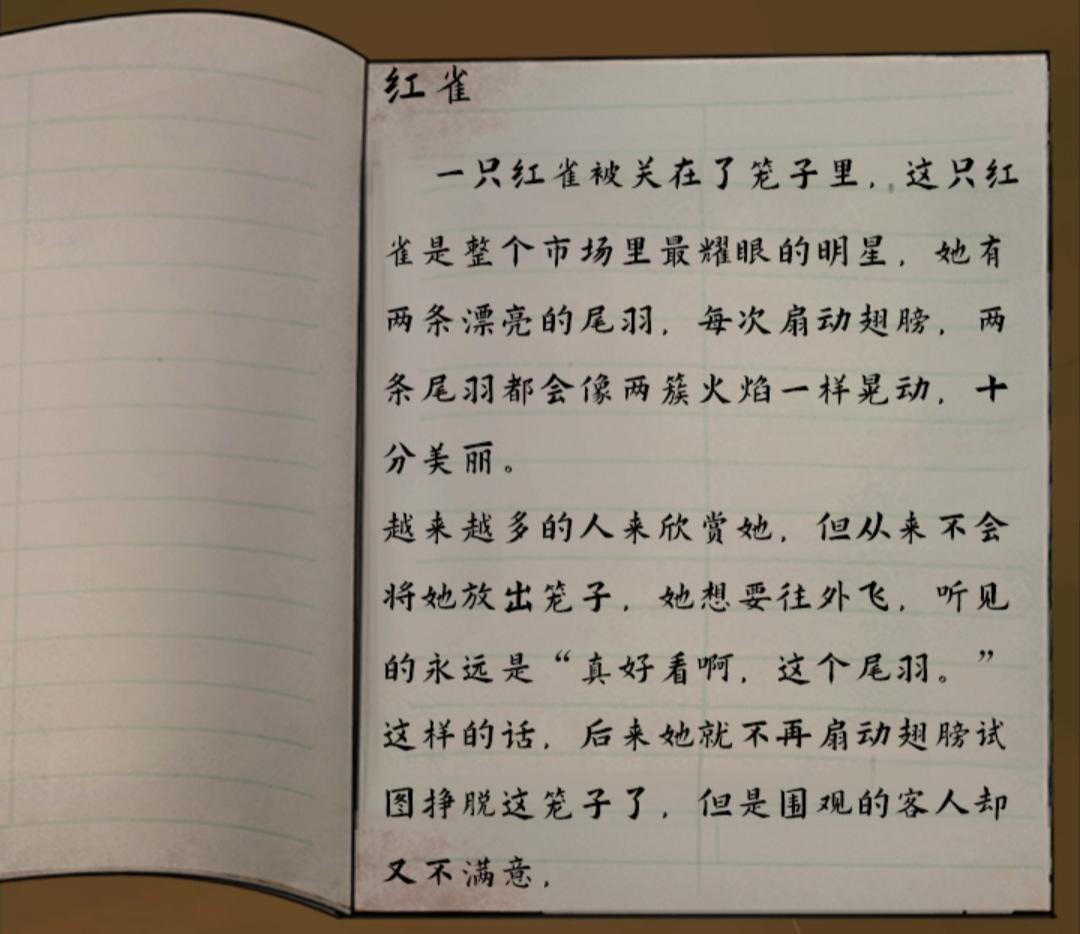 红雀
一只红雀被关在了笼子里，这只红
雀是整个市场里最耀眼的明星，她有
两条漂亮的尾羽，每次扇动翅膀，两
条尾羽都会像两簇火焰一样晃动，十
分美丽。
越来越多的人来欣赏她，但从来不会
将她放出笼子，她想要往外飞，听见
的永远是“真好看啊，这个尾羽。”
这样的话，后来她就不再扇动翅膀试
图挣脱这笼子了，但是围观的客人却
又不满意，